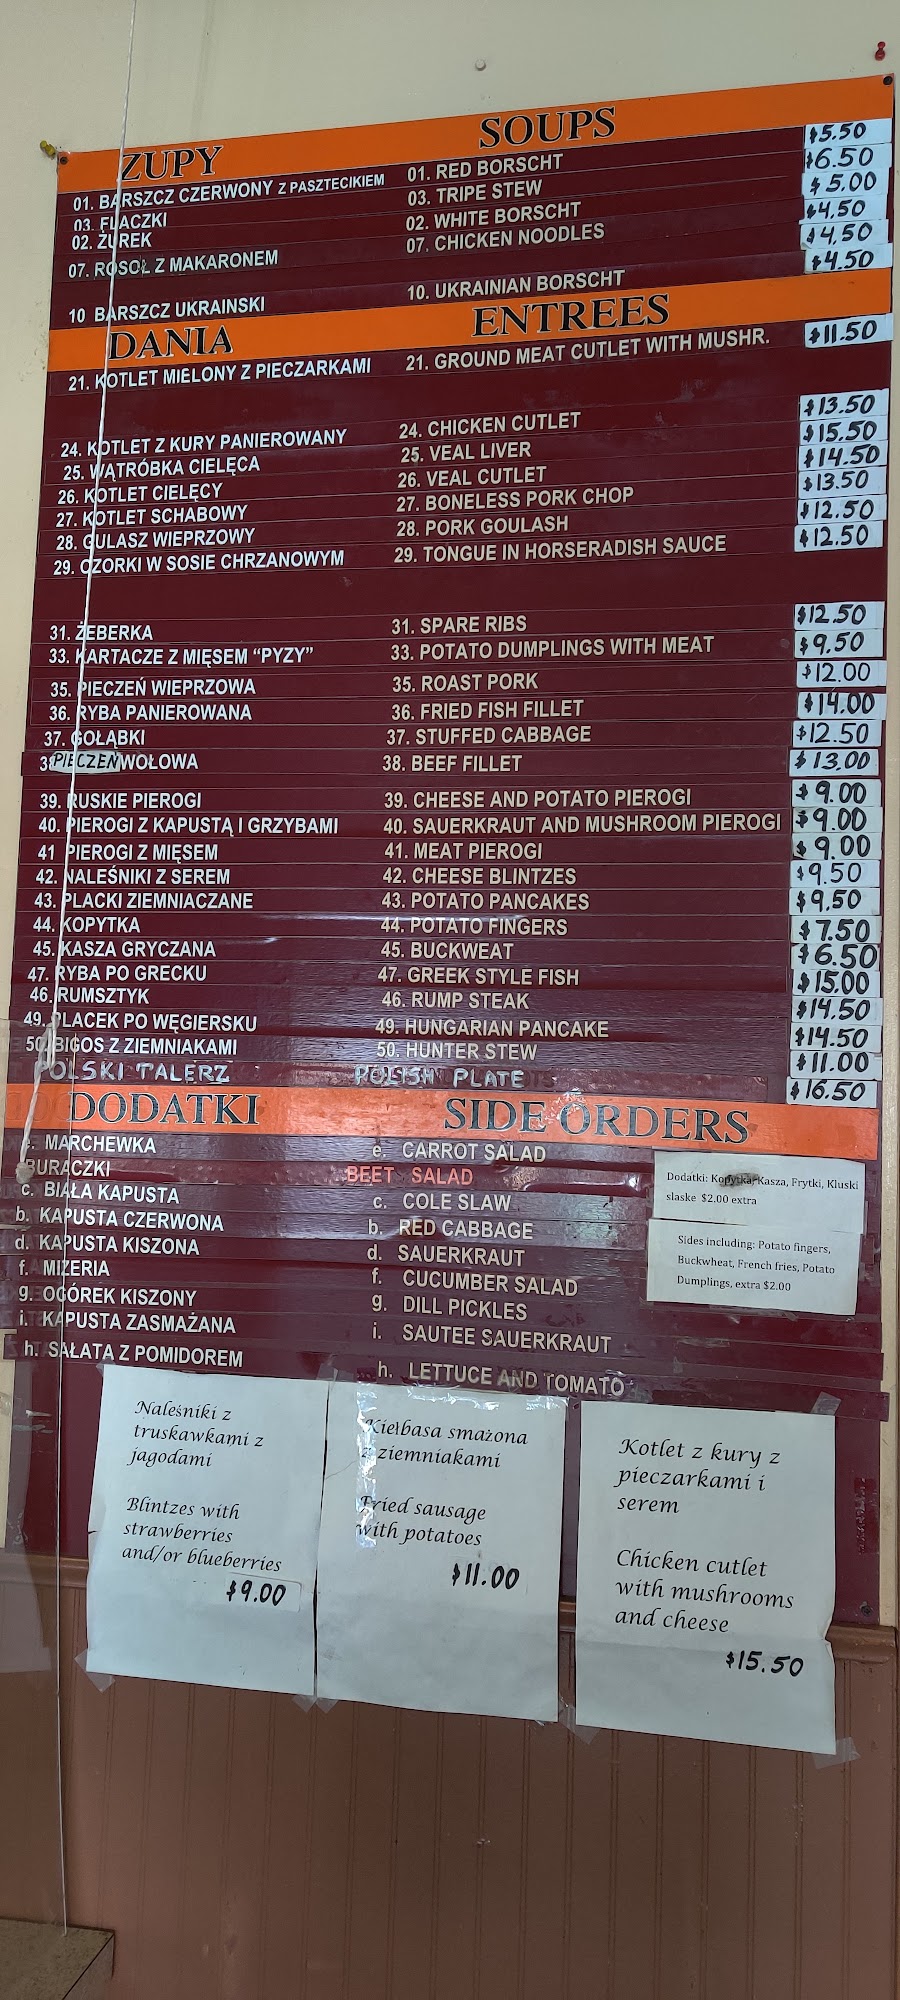 ZUPY SOUPS
01. BARSZCZ CZERWONY Z PASZTECIKIEM 01. RED BORSCHT $5.50
03. FLACZKI 03. TRIPE STEW $6.50
02. ŻUREK 02. WHITE BORSCHT $5.00
07. ROSOŁ Z MAKARONEM 07. CHICKEN NOODLES $4.50
$4.50
10 BARSZCZ UKRAINSKI 10. UKRAINIAN BORSCHT $4.50
DANIA ENTREES
21. KOTLET MIELONY Z PIECZARKAMI 21. GROUND MEAT CUTLET WITH MUSHR. $11.50
24. KOTLET Z KURY PANIEROWANY 24. CHICKEN CUTLET $13.50
25. WĄTRÓBKA CIELĘCA 25. VEAL LIVER $15.50
26. KOTLET CIELĘCY 26. VEAL CUTLET $14.50
27. KOTLET SCHABOWY 27. BONELESS PORK CHOP $13.50
28. GULASZ WIEPRZOWY 28. PORK GOULASH $12.50
29. OZORKI W SOSIE CHRZANOWYM 29. TONGUE IN HORSERADISH SAUCE $12.50
31. ŻEBERKA 31. SPARE RIBS $12.50
33. KARTACZE Z MIĘSEM “PYZY” 33. POTATO DUMPLINGS WITH MEAT $9.50
35. PIECZEŃ WIEPRZOWA 35. ROAST PORK $12.00
36. RYBA PANIEROWANA 36. FRIED FISH FILLET $14.00
37. GOŁĄBKI 37. STUFFED CABBAGE $12.50
38 PIECZEŃ WOŁOWA 38. BEEF FILLET $13.00
39. RUSKIE PIEROGI 39. CHEESE AND POTATO PIEROGI $9.00
40. PIEROGI Z KAPUSTĄ I GRZYBAMI 40. SAUERKRAUT AND MUSHROOM PIEROGI $9.00
41 PIEROGI Z MIĘSEM 41. MEAT PIEROGI $9.00
42. NALEŚNIKI Z SEREM 42. CHEESE BLINTZES $9.50
43. PLACKI ZIEMNIACZANE 43. POTATO PANCAKES $9.50
44. KOPYTKA 44. POTATO FINGERS $7.50
45. KASZA GRYCZANA 45. BUCKWEAT $6.50
47. RYBA PO GRECKU 47. GREEK STYLE FISH $15.00
46. RUMSZTYK 46. RUMP STEAK $14.50
49. PLACEK PO WĘGIERSKU 49. HUNGARIAN PANCAKE $14.50
50. BIGOS Z ZIEMNIAKAMI 50. HUNTER STEW $11.00
POLSKI TALERZ POLISH PLATE $16.50
DODATKI SIDE ORDERS
MARCHEWKA e. CARROT SALAD
BURACZKI BEET SALAD
c. BIAŁA KAPUSTA c. COLE SLAW
b. KAPUSTA CZERWONA b. RED CABBAGE
d. KAPUSTA KISZONA d. SAUERKRAUT
f. MIZERIA f. CUCUMBER SALAD
g. OGÓREK KISZONY g. DILL PICKLES
i. KAPUSTA ZASMAŻANA i. SAUTEE SAUERKRAUT
h. SAŁATA Z POMIDOREM h. LETTUCE AND TOMATO
Dodatki: Kopytka, Kasza, Frytki, Kluski
slaske $2.00 extra
Sides including: Potato fingers,
Buckwheat, French fries, Potato
Dumplings, extra $2.00
Naleśniki z
truskawkami z
jagodami
Blintzes with
strawberries
and/or blueberries
$9.00
Kiełbasa smażona
z ziemniakami
Fried sausage
with potatoes
$11.00
Kotlet z kury z
pieczarkami i
serem
Chicken cutlet
with mushrooms
and cheese
$15.50